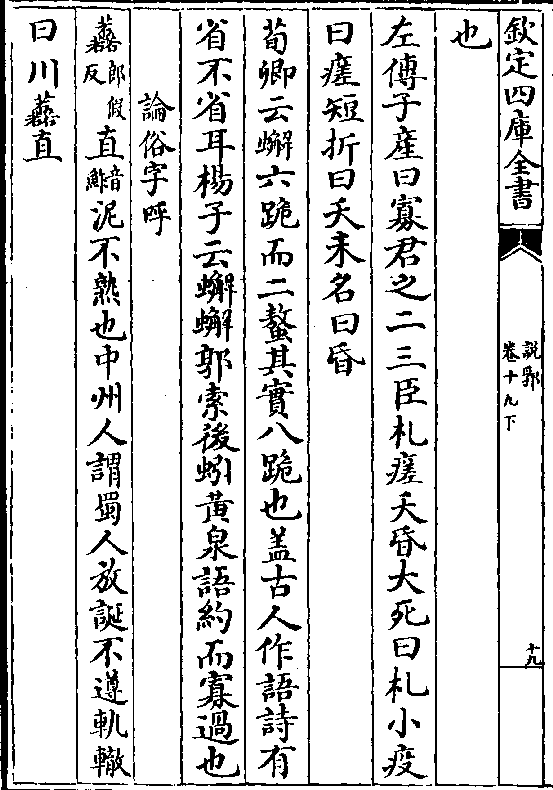 欽定四庫全書
說郛
卷十九下
十九
也
左傳子產曰寡君之二三臣札瘥夭昏大死曰札小疫
曰瘥短折曰夭未名曰昏
荀卿云蠏六跪而二螯其實八跪也盖古人作語詩有
省不省耳楊子云蠏蠏郭索後蚓黃泉語約而寡過也
論俗字呼
藞郎假反直音鮓泥不熟也中州人謂蜀人放誕不遵軌轍
曰川藞直